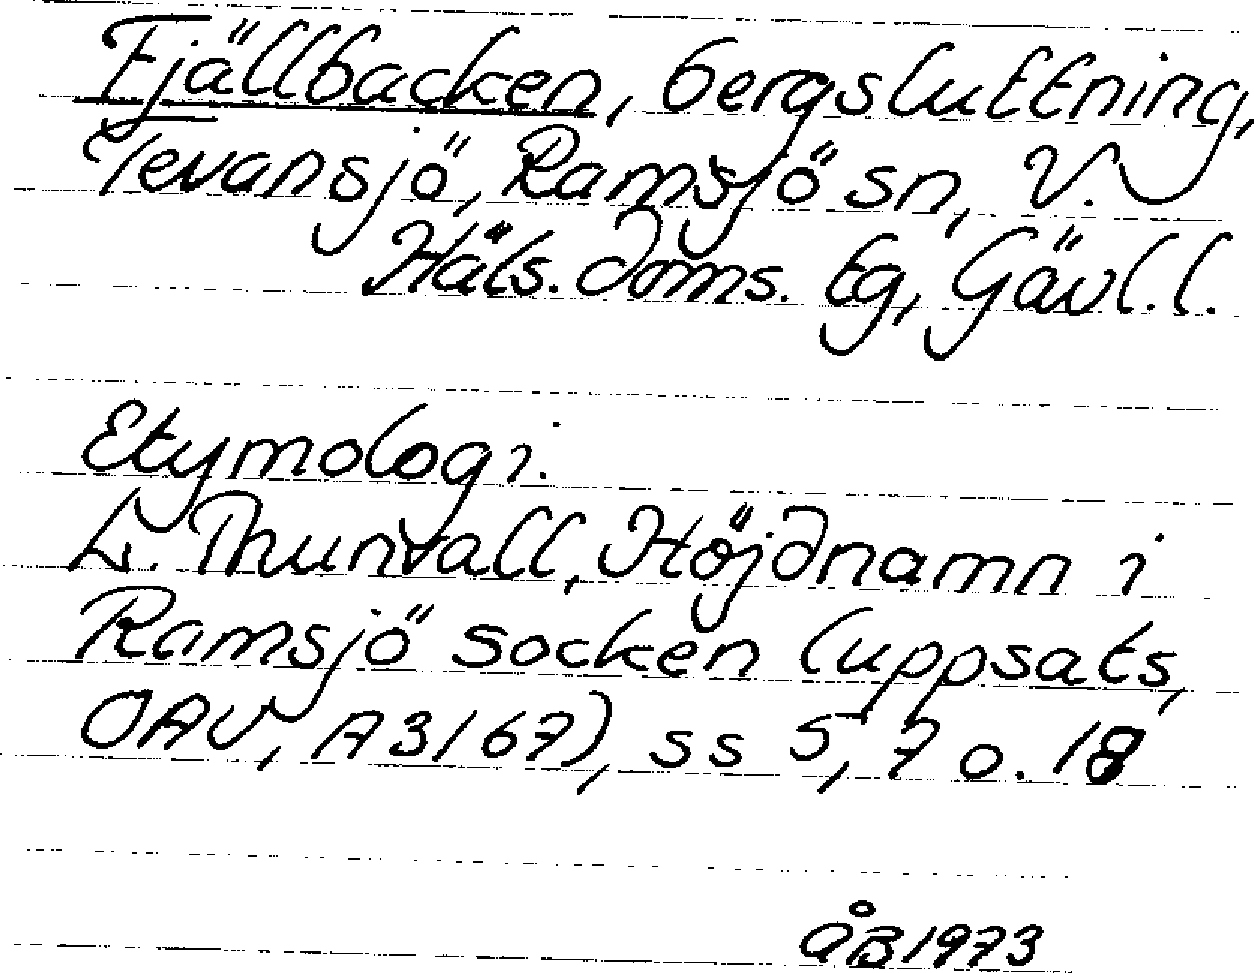 Fjällbacken, bergsluttning,
Tevansjö, Ramsjö sn, V.
Häls. doms. tg, Gävl. l.
Etymologi.
L. Thunvall, Höjdnamn i
Ramsjö socken (uppsats,
OAU, A3167), ss 5, 7 o. 18
ÅB 1973